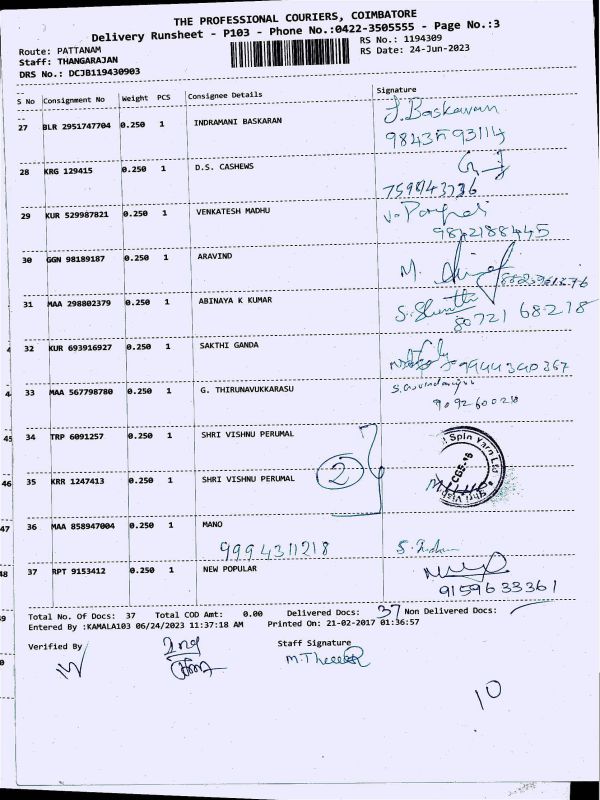 THE PROFESSIONAL COURIERS, COIMBATORE
Delivery Runsheet - P103 - Phone No.:0422-3505555 - Page No.:3
Route: PATTANAM
RS No.: 1194309
Staff: THANGARAJAN
RS Date: 24-Jun-2023
DRS No.: DCJB119430903
S No Consignment No Weight PCS Consignee Details Signature
27 BLR 2951747704 0.250 1 INDRAMANI BASKARAN J. Baskaran
28 KRG 129415 0.250 1 D.S. CASHEWS
29 KUR 529987821 0.250 1 VENKATESH MADHU
9842188445
30 GGN 98189187 0.250 1 ARAVIND M.
31 MAA 298802379 0.250 1 ABINAYA K KUMAR
80721 68218
32 KUR 693916927 0.250 1 SAKTHI GANDA
9944340367
33 MAA 567798780 0.250 1 G. THIRUNAVUKKARASU
45 34 TRP 6091257 0.250 1 SHRI VISHNU PERUMAL
Spin Yarn Ltd
2
46 35 KRR 1247413 0.250 1 SHRI VISHNU PERUMAL
47 36 MAA 858947004 0.250 1 MANO
9994311218
48 37 RPT 9153412 0.250 1 NEW POPULAR
9159633361
Total No. Of Docs: 37 Total COD Amt: 0.00 Delivered Docs: 37 Non Delivered Docs:
Entered By :KAMALA103 06/24/2023 11:37:18 AM Printed On: 21-02-2017 01:36:57
Verified By Staff Signature
10